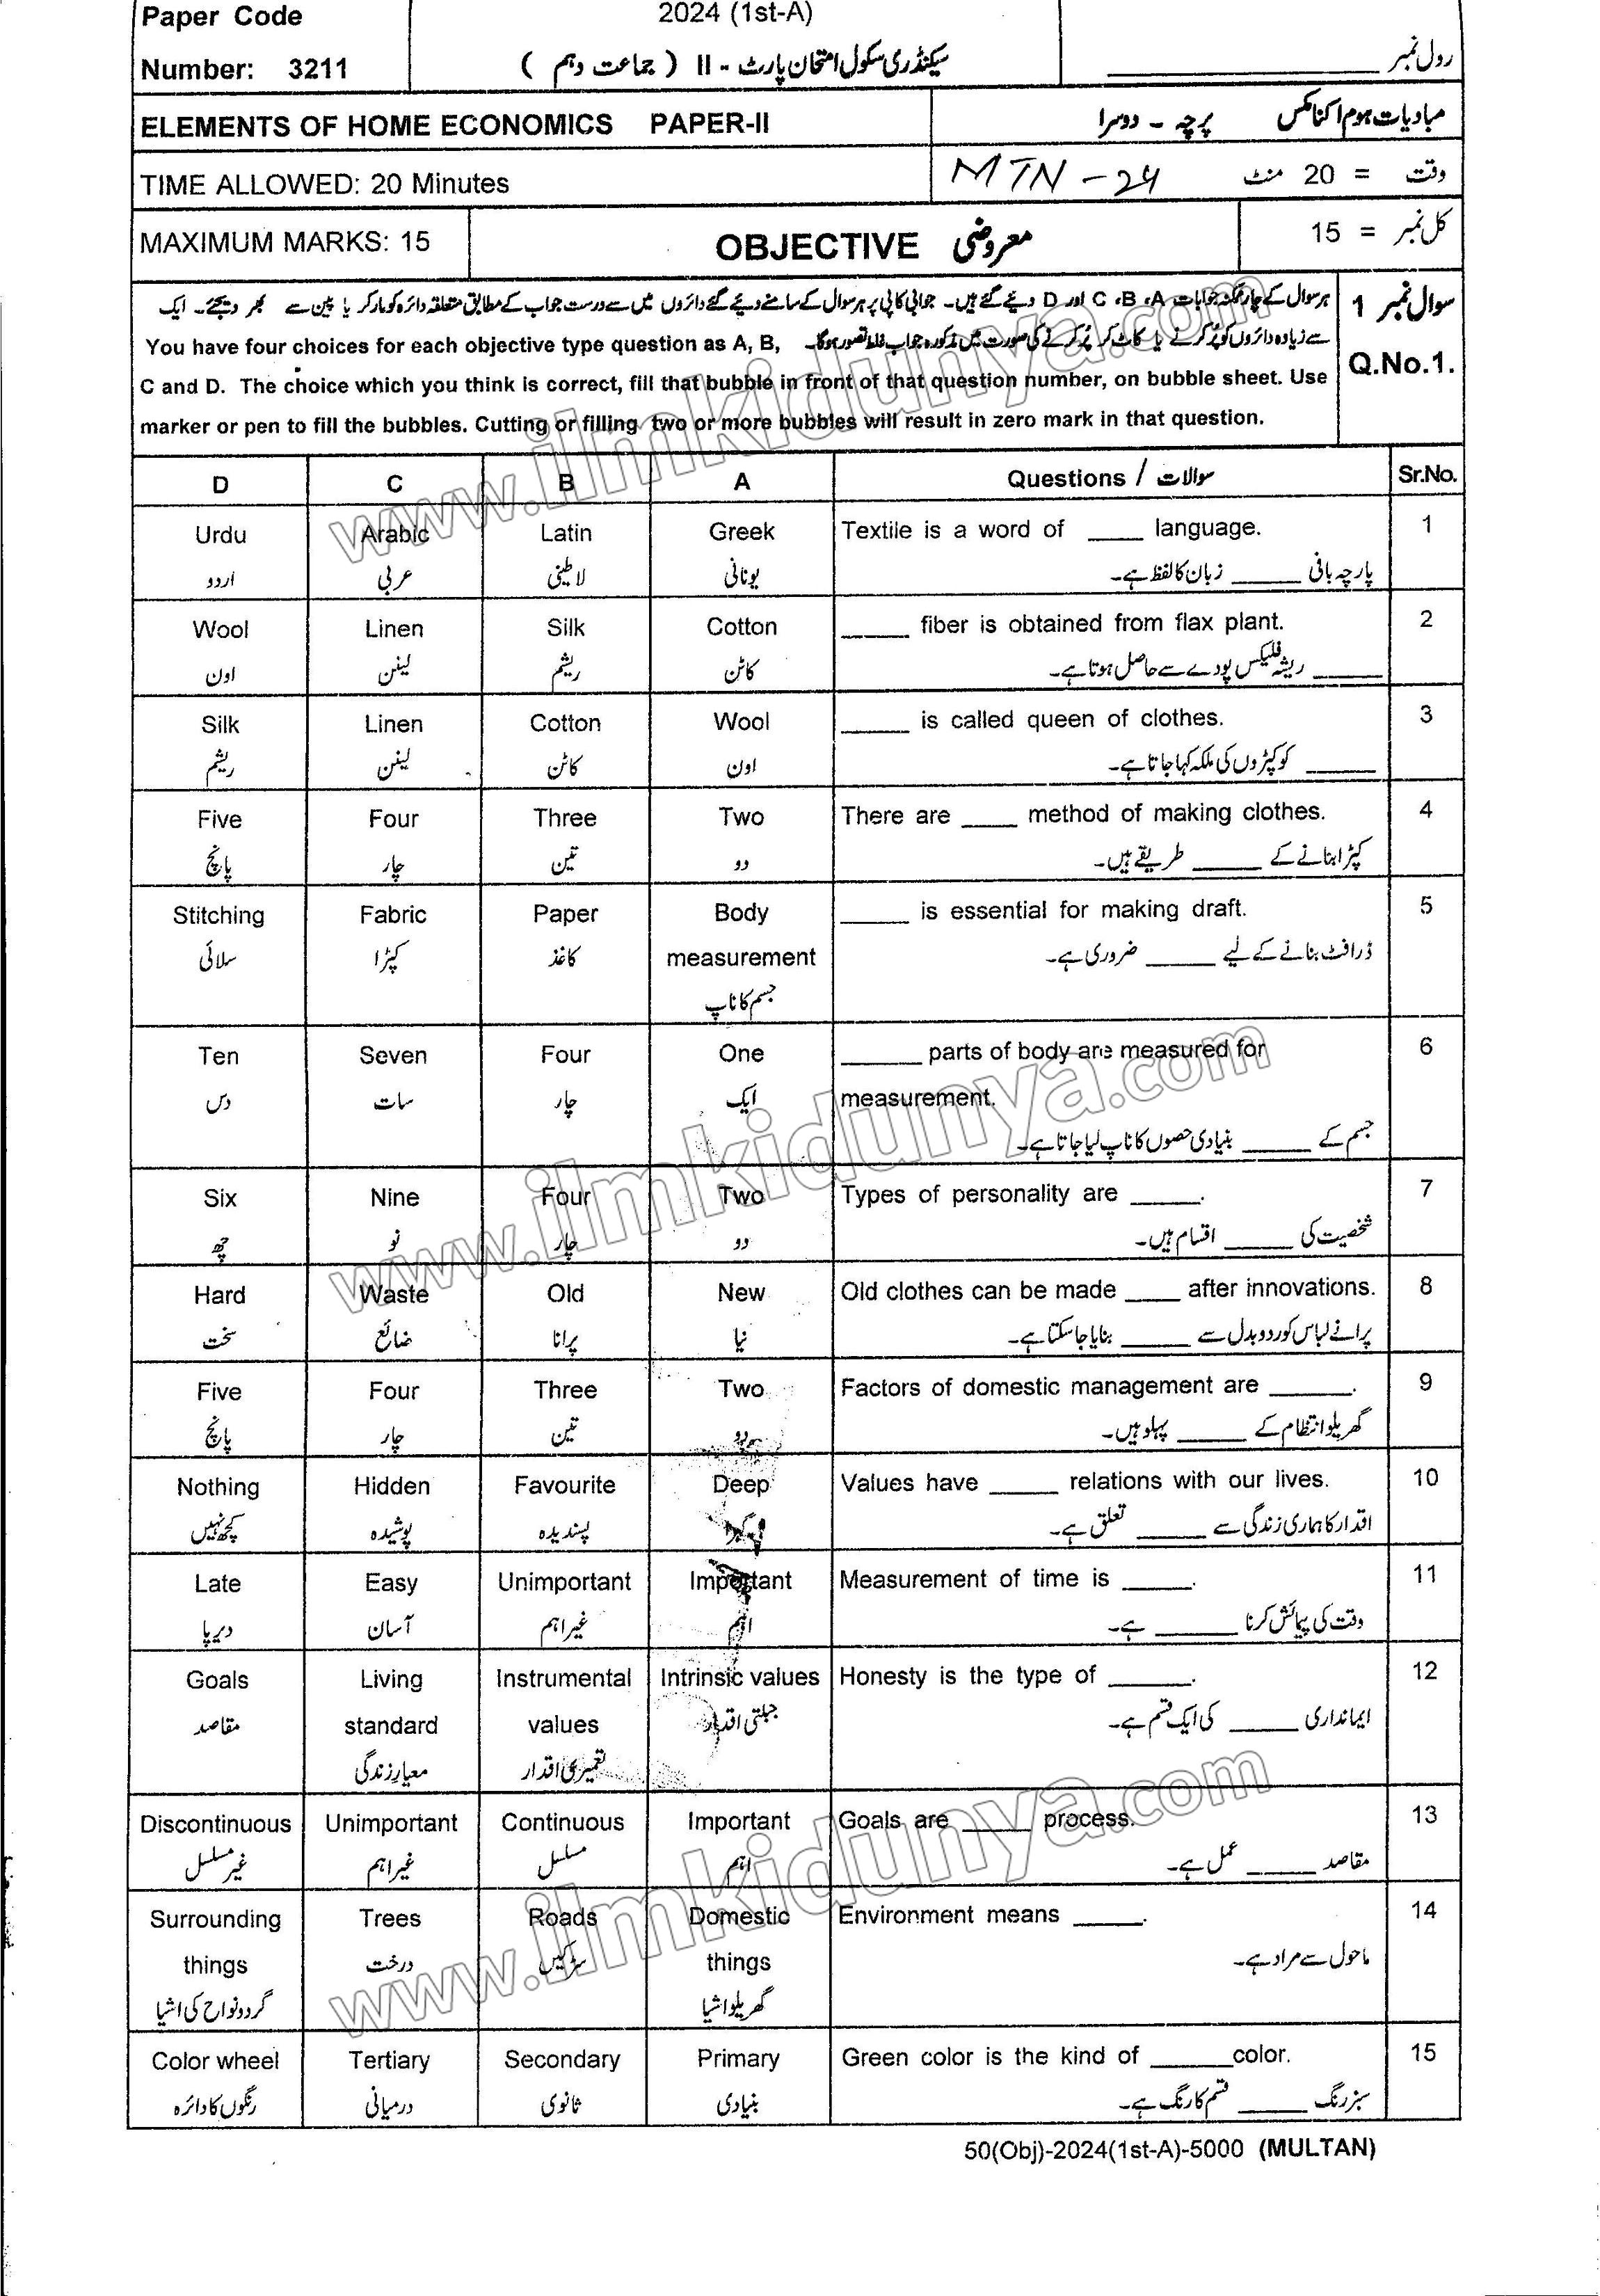 Paper Code
Number: 3211
2024 (1st-A)
سیکنڈری سکول امتحان پارٹ - II ( جماعت دہم )
رول نمبر
ELEMENTS OF HOME ECONOMICS PAPER-II
مبادیات ہوم اکنامکس پرچہ - دوسرا
TIME ALLOWED: 20 Minutes
MTN-24
وقت = 20 منٹ
MAXIMUM MARKS: 15
OBJECTIVE معروضی
کل نمبر = 15
سوال نمبر 1
Q.No.1.
ہر سوال کے چار ممکنہ جوابات A ،B ،C اور D دیئے گئے ہیں۔ جوابی کاپی پر ہر سوال کے سامنے دیئے گئے دائروں میں سے درست جواب کے مطابق متعلقہ دائرہ کو مارکر یا پین سے بھر دیجئے۔ ایک
سے زیادہ دائروں کو پُر کرنے یا کاٹ کر پُر کرنے کی صورت میں مذکورہ جواب غلط تصور ہوگا۔
You have four choices for each objective type question as A, B,
C and D. The choice which you think is correct, fill that bubble in front of that question number, on bubble sheet. Use
marker or pen to fill the bubbles. Cutting or filling two or more bubbles will result in zero mark in that question.
D C B A Questions / سوالات Sr.No.
Urdu Arabic Latin Greek Textile is a word of ____ language. 1
اردو عربی لاطینی یونانی پارچہ بافی _____ زبان کا لفظ ہے۔
Wool Linen Silk Cotton _____ fiber is obtained from flax plant. 2
اون لینن ریشم کاٹن _____ ریشہ فلیکس پودے سے حاصل ہوتا ہے۔
Silk Linen Cotton Wool _____ is called queen of clothes. 3
ریشم لینن کاٹن اون _____ کو کپڑوں کی ملکہ کہا جاتا ہے۔
Five Four Three Two There are ____ method of making clothes. 4
پانچ چار تین دو کپڑا بنانے کے _____ طریقے ہیں۔
Stitching Fabric Paper Body _____ is essential for making draft. 5
measurement
سلائی کپڑا کاغذ جسم کا ناپ ڈرافٹ بنانے کے لیے _____ ضروری ہے۔
Ten Seven Four One ______ parts of body are measured for 6
measurement.
دس سات چار ایک جسم کے _____ بنیادی حصوں کا ناپ لیا جاتا ہے۔
Six Nine Four Two Types of personality are _____. 7
چھ نو چار دو شخصیت کی _____ اقسام ہیں۔
Hard Waste Old New Old clothes can be made ____ after innovations. 8
سخت ضائع پرانا نیا پرانے لباس کو ردو بدل سے _____ بنایا جا سکتا ہے۔
Five Four Three Two Factors of domestic management are ______. 9
پانچ چار تین دو گھریلو انتظام کے _____ پہلو ہیں۔
Nothing Hidden Favourite Deep Values have _____ relations with our lives. 10
کچھ نہیں پوشیدہ پسندیدہ گہرا اقدار کا ہماری زندگی سے _____ تعلق ہے۔
Late Easy Unimportant Important Measurement of time is _____. 11
دیرپا آسان غیر اہم اہم وقت کی پیمائش کرنا ______ ہے۔
Goals Living Instrumental Intrinsic values Honesty is the type of ______. 12
standard values
مقاصد معیار زندگی تعمیری اقدار جبلتی اقدار ایمانداری _____ کی ایک قسم ہے۔
Discontinuous Unimportant Continuous Important Goals are _____ process. 13
غیر مسلسل غیر اہم مسلسل اہم مقاصد _____ عمل ہے۔
Surrounding Trees Roads Domestic Environment means _____. 14
things things
گردونواح کی اشیا درخت سڑکیں گھریلو اشیا ماحول سے مراد ہے۔
Color wheel Tertiary Secondary Primary Green color is the kind of ______color. 15
رنگوں کا دائرہ درمیانی ثانوی بنیادی سبز رنگ _____ قسم کا رنگ ہے۔
50(Obj)-2024(1st-A)-5000 (MULTAN)
www.ilmkidunya.com
www.ilmkidunya.com
www.ilmkidunya.com